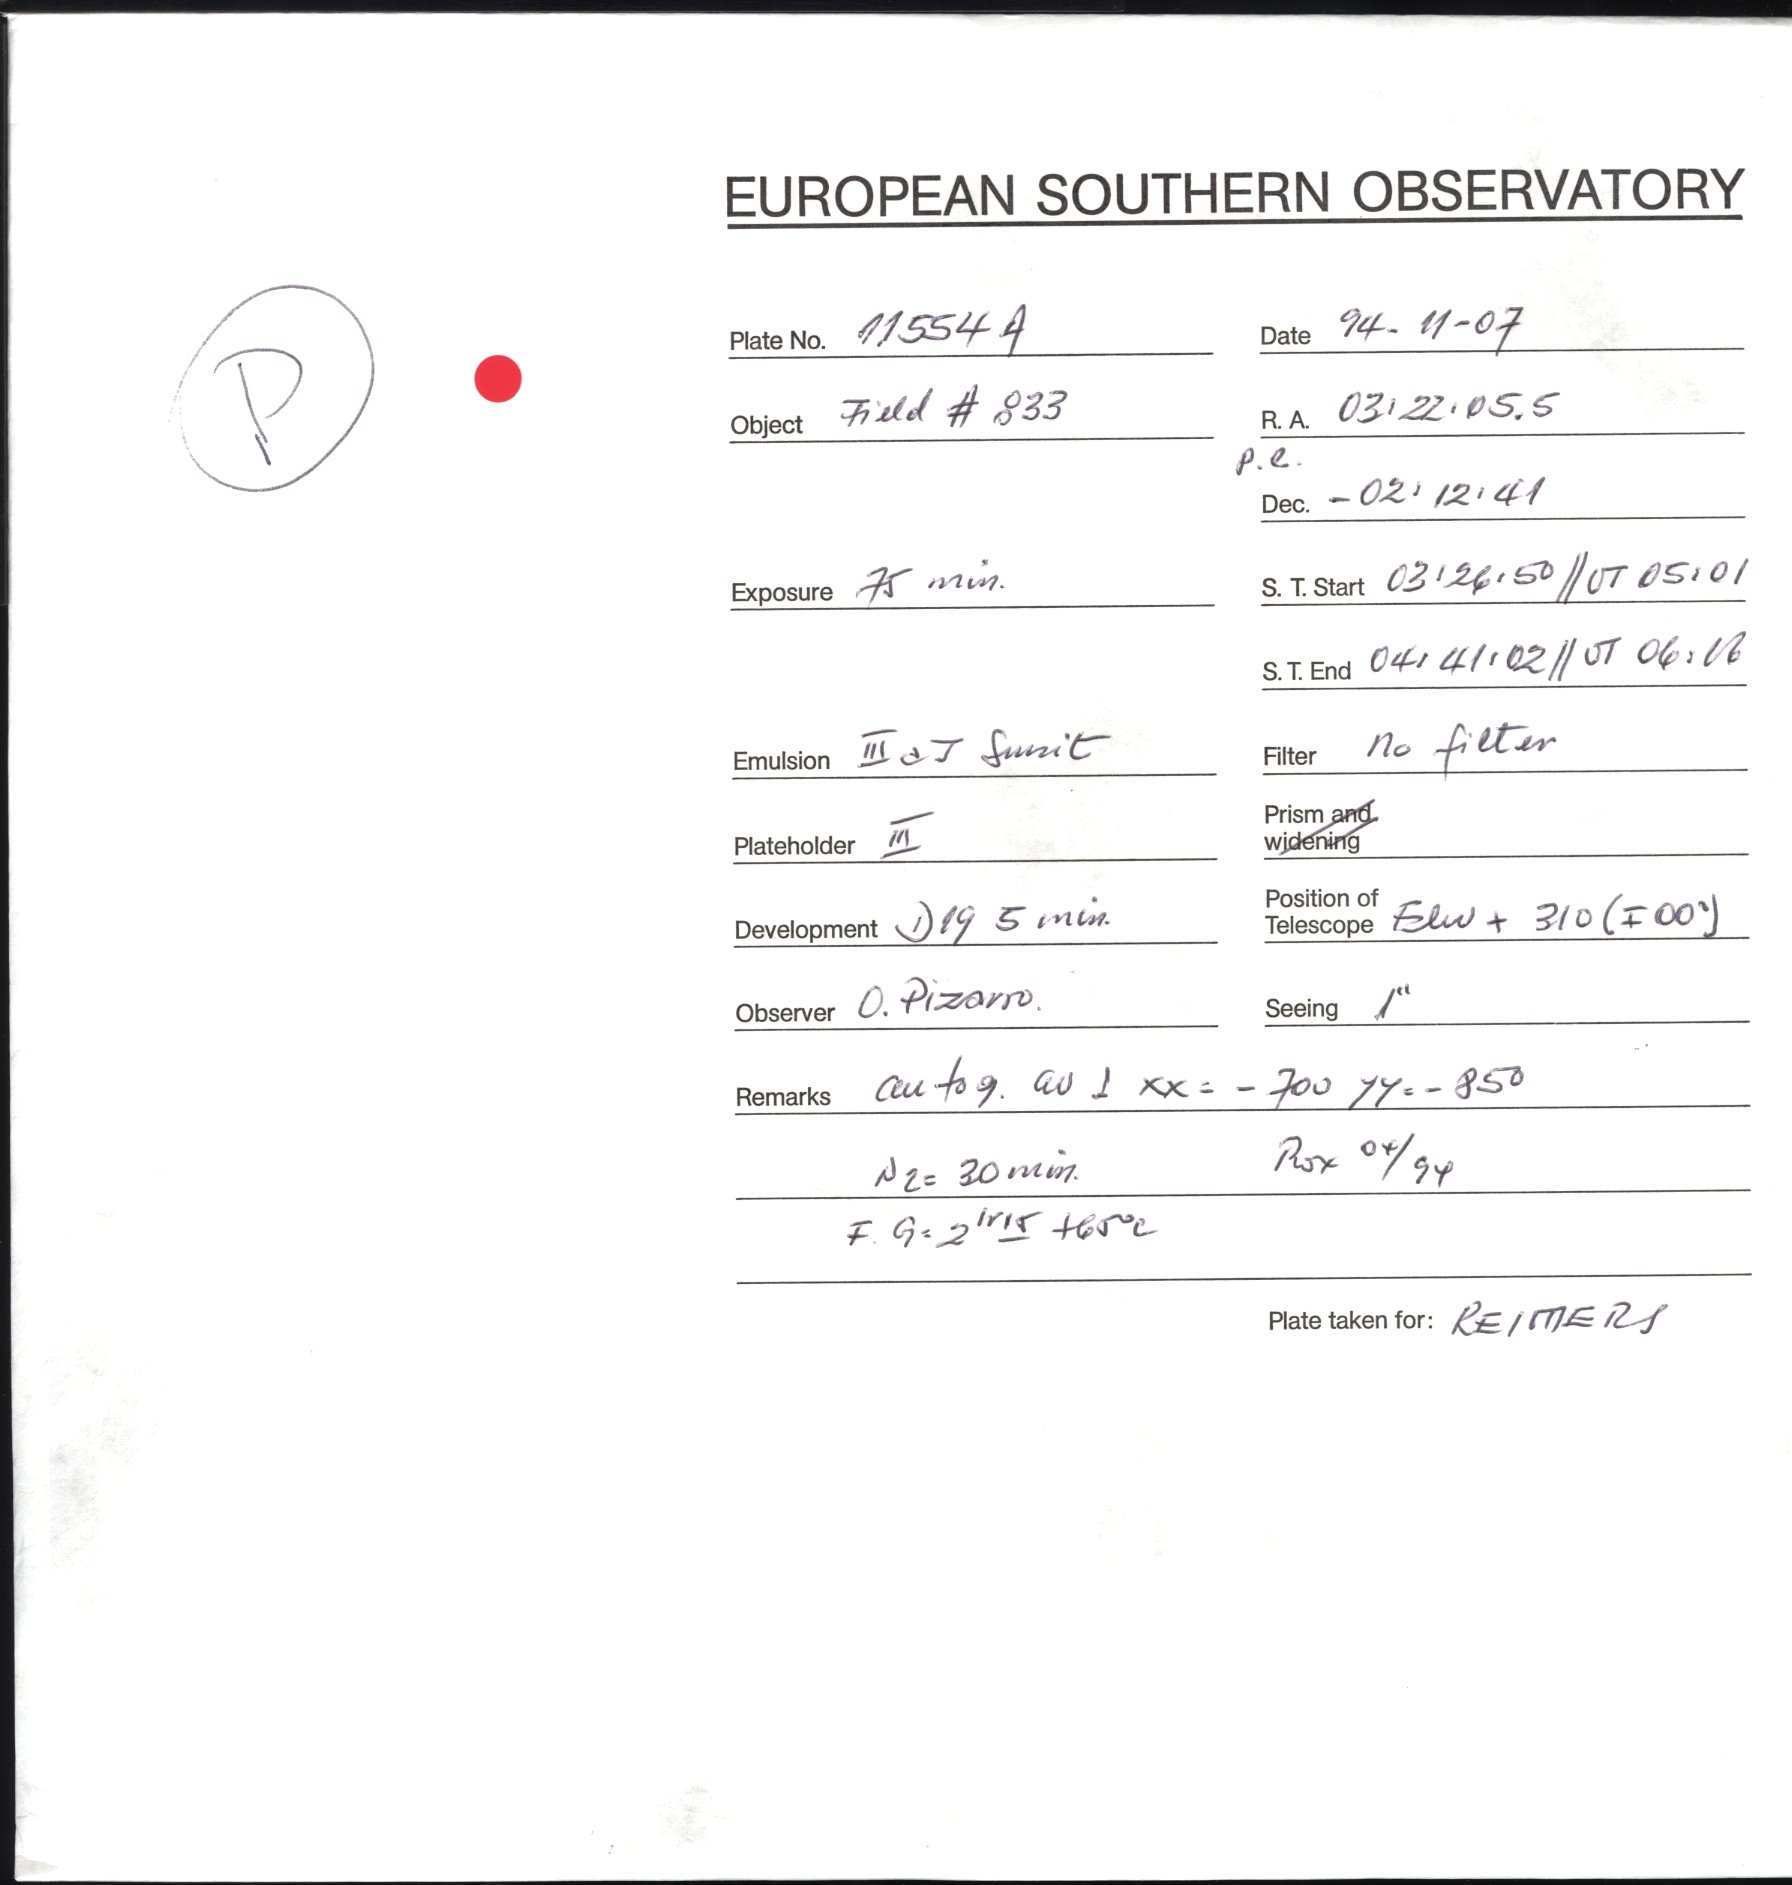 EUROPEAN SOUTHERN OBSERVATORY
P
Plate No. 11554 A
Date 94-11-07
Object Field # 833
R. A. 03:22:05.5
p.c.
Dec. -02:12:41
Exposure 75 min.
S. T. Start 03:26:50 // UT 05:01
S. T. End 04:41:02 // UT 06:16
Emulsion III a J
Filter no filter
Plateholder III
Prism and
widening
Development D19 5 min.
Position of
Telescope + 310
Observer O. Pizarro.
Seeing 1"
Remarks autog. xx = -700 yy = -850
N2 = 30 min. 04/94
F. G = +65°C
Plate taken for: REIMERS